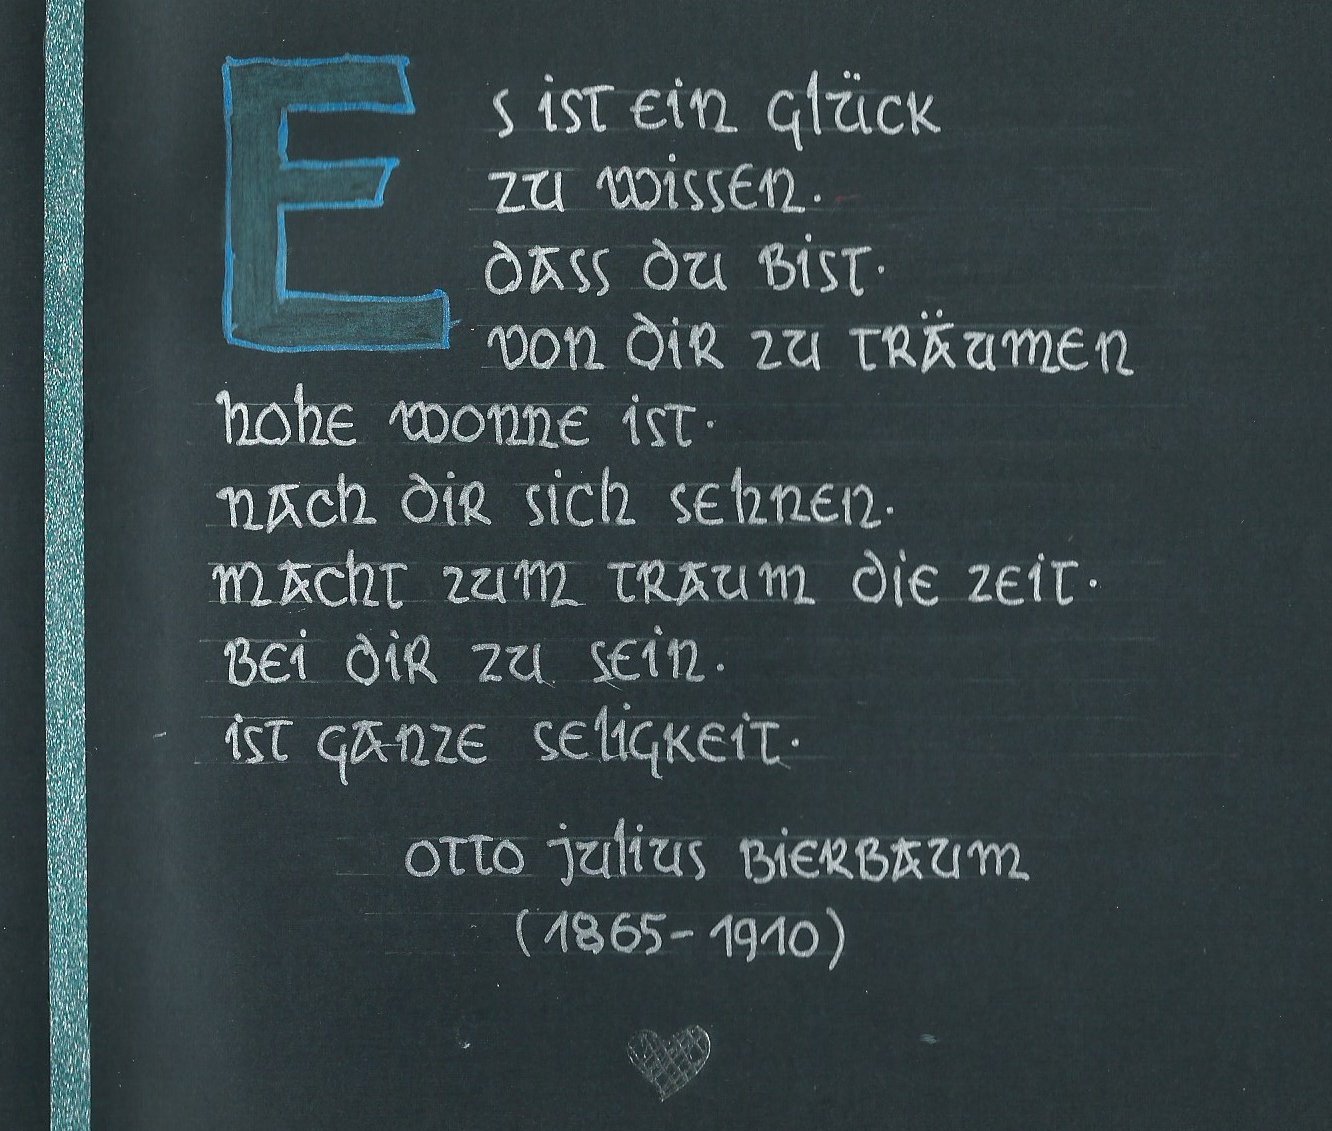 Es ist ein Glück
zu wissen·
dass du bist·
von dir zu träumen
hohe Wonne ist·
nach dir sich sehnen·
macht zum Traum die Zeit·
bei dir zu sein·
ist ganze Seligkeit·
Otto Julius Bierbaum
(1865-1910)